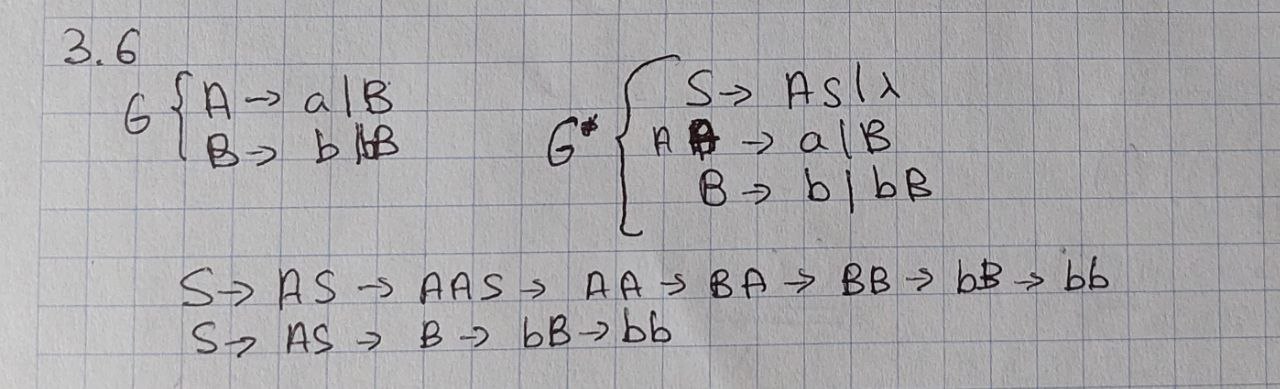 3.6
G { A → a | B
B → b | bB
G* { S → AS | λ
A → a | B
B → b | bB
S → AS → AAS → AA → BA → BB → bB → bb
S → AS → B → bB → bb